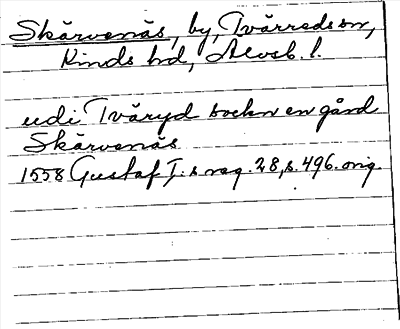 Skärvenäs, by, Tvärreds sn,
Kinds hd, Älvsb. l.
udi Tväryd sockn en gård
Skärvenäs
1558 Gustaf I:s reg. 28, s. 496. orig